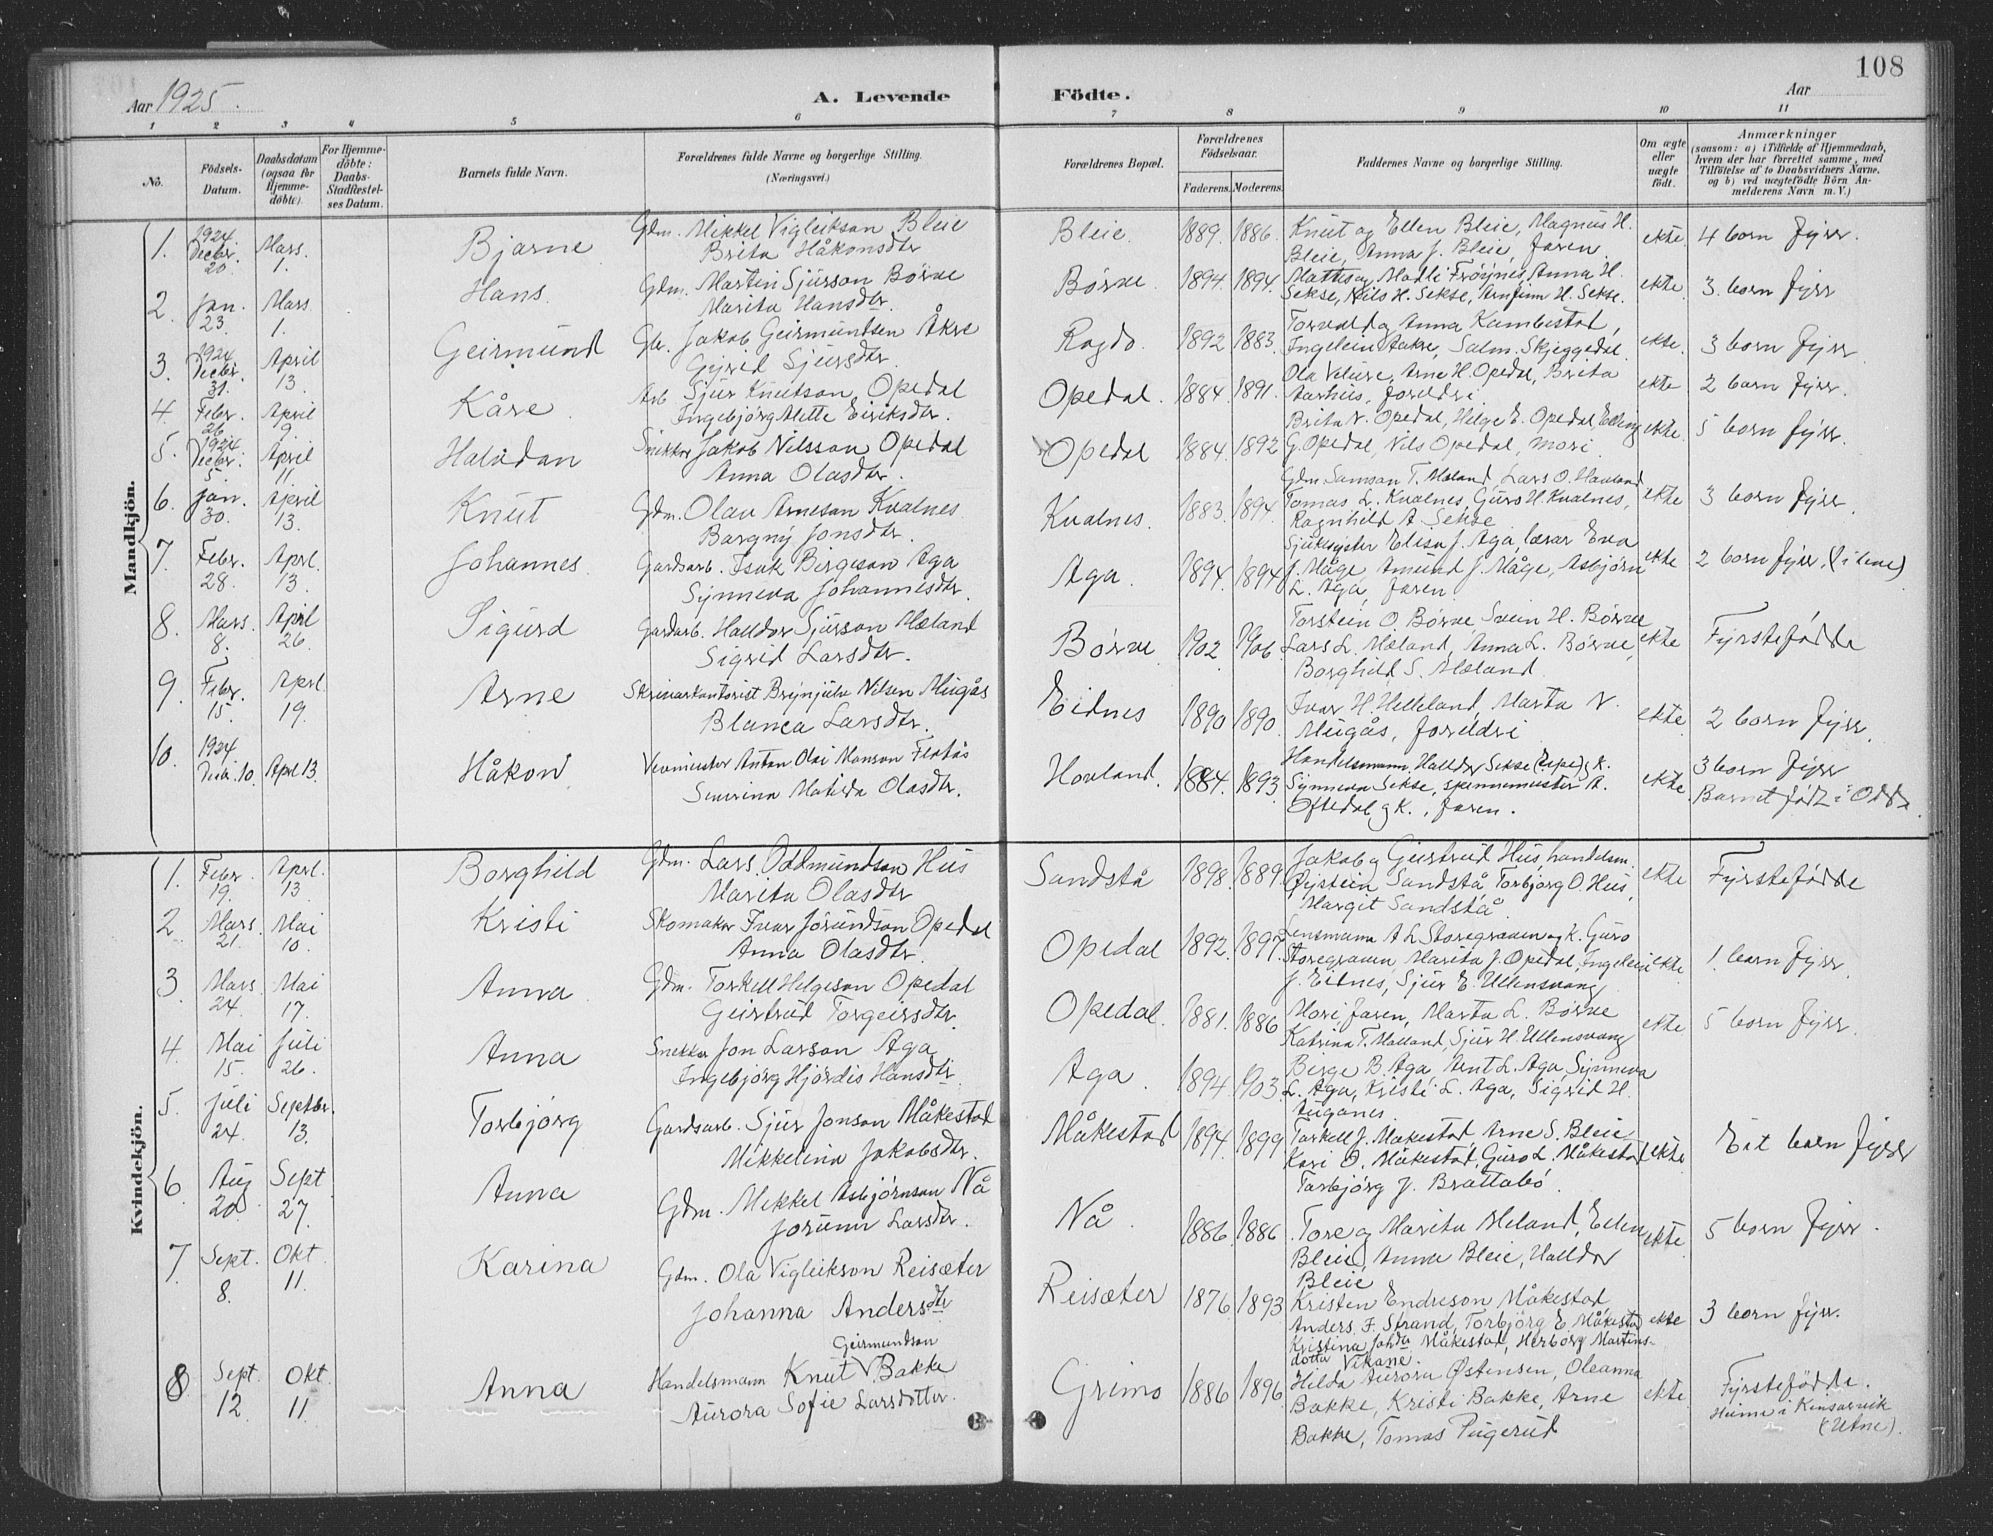 108
Aar 1925.
A. Levende Födte.
Aar
1 2 3 4 5 6 7 8 9 10 11
No.
Födsels-Datum.
Daabsdatum (ogsaa for Hjemme-döbte).
For Hjemme-döbte: Daabs-Stadfæstel-ses Datum.
Barnets fulde Navn.
Forældrenes fulde Navne og borgerlige Stilling. (Næringsvei.)
Forældrenes Bopæl.
Forældrenes Födselsaar.
Faderens. Moderens.
Faddernes Navne og borgerlige Stilling.
Om ægte eller uægte födt.
Anmærkninger
(saasom: a) i Tilfælde af Hjemmedaab, hvem der har forrettet samme, med Tilföielse af to Daabsvidners Navne, og b) ved uægtefödte Börn An-melderens Navn m. V.)
Mandkjön.
1. 1924 Decbr. 20. Mars. 1. Bjarne Gdm. Mikkel Vigleikson Bleie
Brita Håkonsdtr Bleie. 1889. 1886. Knut og Ellen Bleie, Magnus H.
Bleie, Anna J. Bleie, faren. ekte 4 born fyrr.
2. Jan. 23. Mars 1. Hans. Gdm. Martin Sjurson Börve
Marita Hansdtr. Börve. 1894. 1894. Matths og Madli Fröynes, Anna H.
Sekse, Nils H. Sekse, Arnfinn H. Sekse. ekte. 3. born fyrr
3. 1924 Decbr. 31. April 13. Geirmund Gbr. Jakob Geirmundsen Åkre
Gyrid Sjursdtr. Ragde. 1892 1883. Torvald og Anna Kambestad,
Ingeleiv Aakre, Salm. Skjeggedal. ekte. 3 born fyrr
4. Febr. 26 April 9 Kåre. Arb. Sjur Knutson Opedal
Ingebjörg Mette Eiriksdtr. Opedal. 1884. 1891. Ola Velure, Arne H. Opedal, Brita
Aarhus, foreldri. ekte 2 born fyrr.
5. 1924 Decbr. 5. April 11. Halvdan Snekkar Jakob Nilsson Opedal
Anna Olasdtr. Opedal 1884. 1892 Brita N. Opedal, Helge E. Opedal, Elling
G. Opedal, Nils Opedal, mori. ekte. 5 born fyrr.
6. Jan. 30. April 13. Knut Gdm. Olav Arneson Kvalnes
Bargny Jonsdtr. Kvalnes. 1883. 1894. Gdm. Samson T. Mæland, Lars O. Hauland
Tomas L. Kvalnes, Guro H. Kvalnes,
Ragnhild A Sekse ekte 3 born fyrr.
7. Febr. 28. Aprl. 13. Johannes. Gardsarb. Isak Birgeson Aga
Synneva Johannesdtr. Aga. 1894. 1894 Sjukesyster Elisa J. Aga lærar Eva
J. Måge, Amund J. Måge, Asbjörn
L. Aga, faren. ekte 2 born fyrr,
8. Mars. 8. April 26. Sigurd Gardarb. Halldor Sjurson Mæland
Sigrid Larsdtr. Börve 1902. 1906. Torstein O. Börve Svein H. Börve
Lars L. Mæland, Anna L. Börve,
Borghild S. Mæland. ekte Fyrstefödde
9. Febr. 15. Aprl. 19. Arne Skrivarkontorist Brynjulv Nilsen Mugås
Blanca Larsdtr. Eidnes 1890 1890. Ivar H. Helleland, Marta N.
Mugås, foreldri ekte. 2 born fyrr.
10. 1924 Decbr. 10. Aprl 13. Håkon Vevmeister Anton Olai Monson Flatås
Severina Matilda Olasdtr. Hovland. 1884. 1893. Handelsmann Halldor Sekse (Espe) og k.
Synneva Sekse, spinnemeister A.
Oftedal og k., faren. ekte. 3 born fyrr
Barnet föd i Odda.
Kvindekjön.
1. Febr. 19. Aprl. 13. Borghild Gdm. Lars Oddmundson Hus
Marita Olasdtr Sandstå 1898. 1889 Jakob og Geirtrud Hus handelsm.
Öystein Sandstå Torbjörg O. Hus,
Margit Sandstå. ekte Fyrstefödde
2. Mars. 21. Mai 10. Kristi Skomakar Ivar Jörundson Opedal
Anna Olasdtr. Opedal 1892. 1897 Lensmann A L Storegraven og k. Guro
Storegraven, Marita J. Opedal, Ingeleiv
J. Eidnes, Sjur E. Ullensvang ekte 1. born fyrr.
3. Mars. 24. Mai 17. Anna Gdm. Torkell Helgeson Opedal
Geirtrud Torgeirsdtr. Opedal. 1881. 1886 Mori faren, Marta L. Börve
Katrina T. Hålland, Sjur H. Ullensvang ekte 5 born fyrr.
4. Mai 15. Juli 26. Anna Snekkar Jon Larson Aga
Ingebjörg Hjördis Hansdtr. Aga. 1894 1903. Birge B. Aga, Arnt L. Aga, Synneva
L. Aga, Kristi L. Aga, Sigrid H.
Auganes.
5. Juli 24. Septbr. 13. Torbjörg Gardsarb. Sjur Jonson Måkestad
Mikkelina Jakobsdtr. Måkestad 1894. 1899 Torkell J. Måkestad Arne S. Bleie
Kari O. Måkestad, Guro L. Måkestad
Torbjörg J. Brattabö. ekte. Eit born fyrr
6. Aug 20. Sept 27. Anna Gdm. Mikkel Asbjörnson Nå
Jorunn Larsdtr. Nå. 1886. 1886 Tore og Marita Meland, Ellen
Bleie, Anna Bleie, Halldor
Bleie ekte. 5 born fyrr.
7. Sept. 8. Okt. 11. Karina Gdm. Ola Vigleikson Reisæter
Johanna Andersdtr Reisæter 1876 1893 Kristen Endreson Måkestad
Anders F. Strand, Torbjörg E. Måkestad
Kristina Johda Måkestad, Herborg Martins-
dotter Vikane. ekte 3 born fyrr.
8 Sept. 12. Okt. 11. Anna Handelsmann Knut Geirmundson V. Bakke
Aurora Sofie Larsdotter. Grimo 1886 1896 Hilda Aurora Östensen, Oleanna
Bakke, Kristi Bakke, Arne
Bakke, Tomas Pugerud ekte Fyrstefödde.
Heime i Kinsarvik
(Utne).